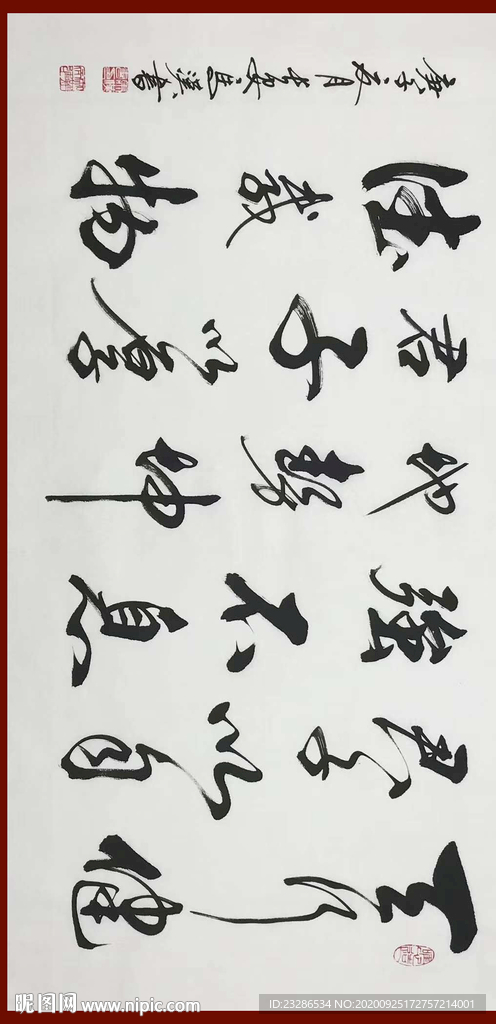 天行健
君子以自
强不息
地势坤
君子以厚
德载物
庚子 月 書
昵图网 www.nipic.com
ID:23286534 NO:20200925172757214001